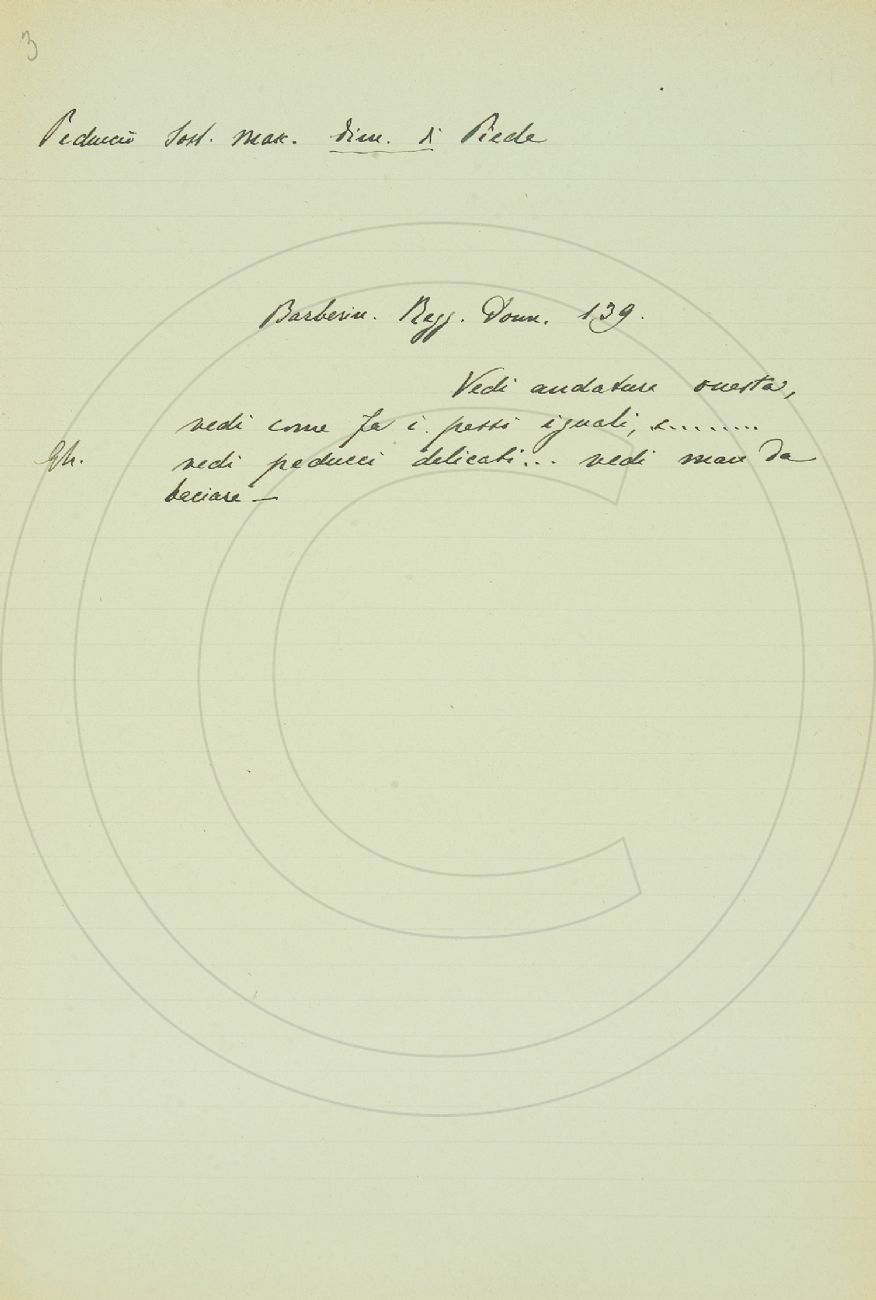 3
Peduccio Sost. masc. dim. di Piede
Barberin. Regg. Donn. 139.
Vedi andature onesta,
vedi come fa i passi iguali, e........
Gh. vedi peducci delicati... vedi man da
baciare —